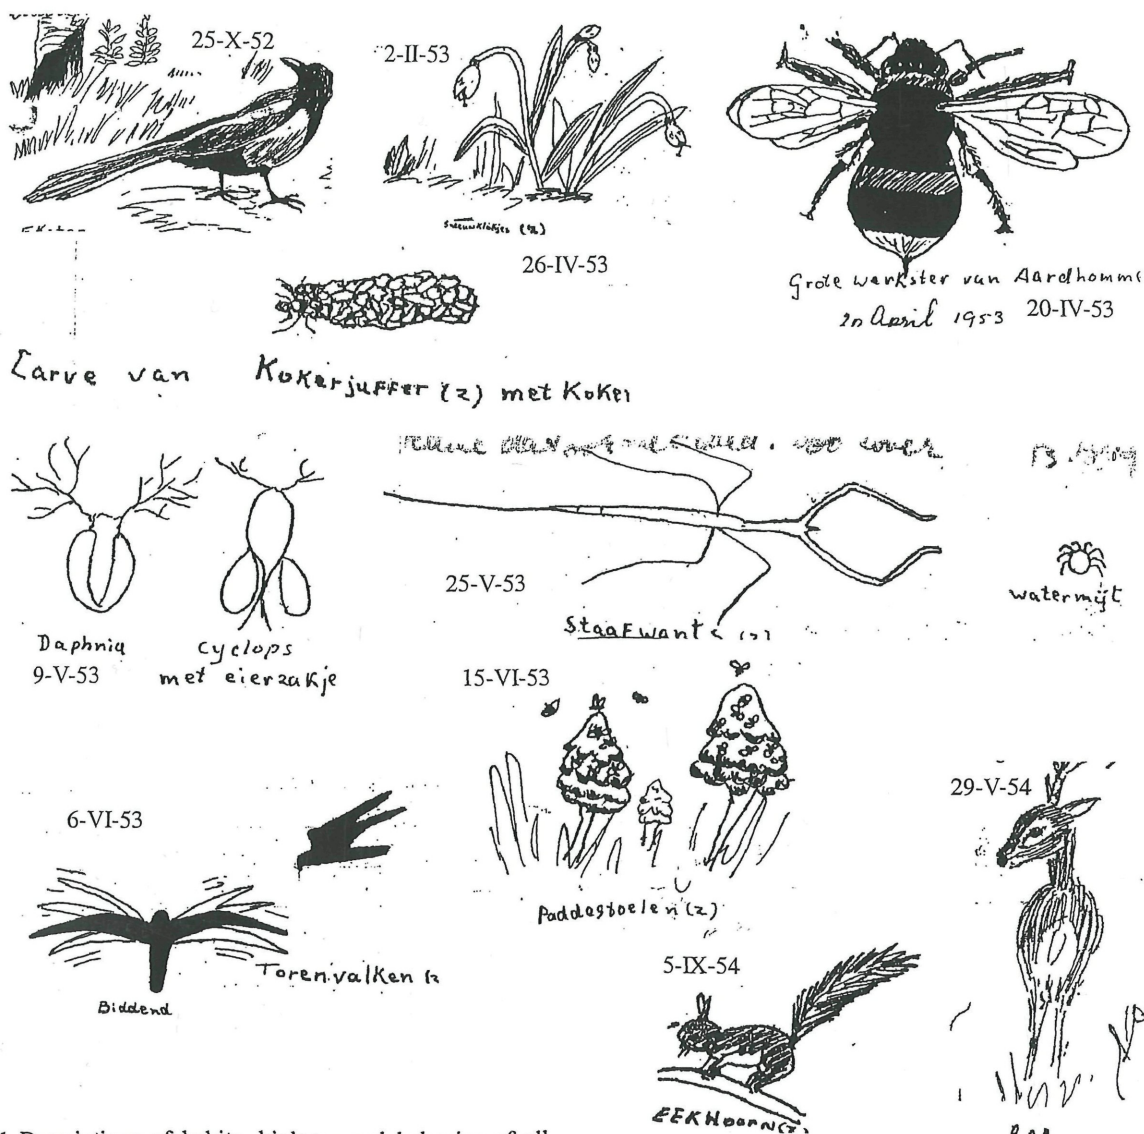 25-X-52
2-II-53
Sneeuwklokjes (z)
26-IV-53
Grote werkster van Aardhomme
20 April 1953 20-IV-53
Larve van Kokerjuffer (z) met Koker
Daphnia
9-V-53
cyclops
met eierzakje
25-V-53
Staafwants
watermijt
15-VI-53
Paddestoelen (z)
6-VI-53
Torenvalken
Biddend
29-V-54
5-IX-54
EEKHOORN (z)